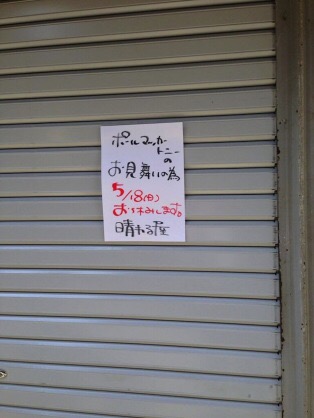 ポールマッカートニーの
お見舞いの為
5/18(日)
お休みします。
晴れる屋